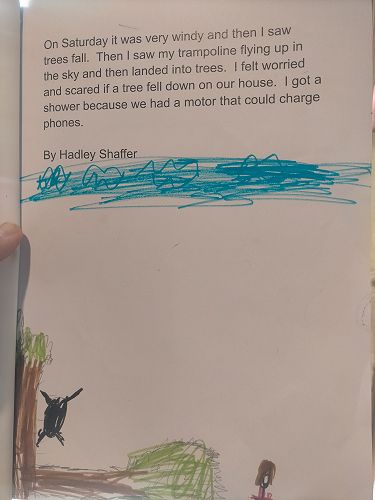 On Saturday it was very windy and then I saw
trees fall. Then I saw my trampoline flying up in
the sky and then landed into trees. I felt worried
and scared if a tree fell down on our house. I got a
shower because we had a motor that could charge
phones.
By Hadley Shaffer